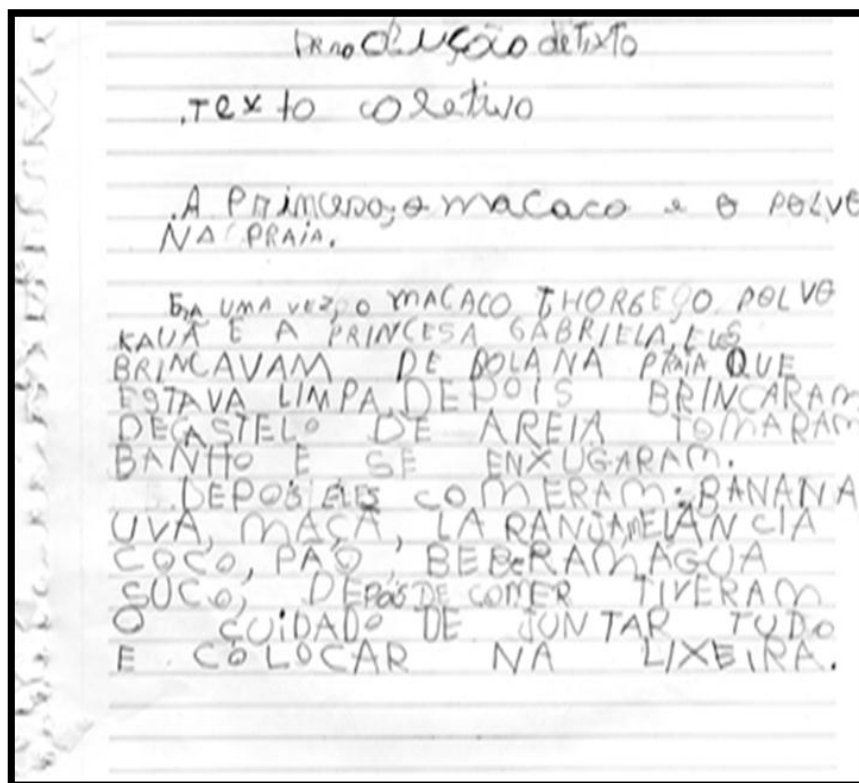 Produção de Texto
.Texto coletivo
.A Princesa, o macaco e o POLVO
NA PRAIA.
ERA UMA VEZ, O MACACO THORGEÇO POLVO
KAUÃ E A PRINCESA GABRIELA, ELES
BRINCAVAM DE BOLA NA PRAIA QUE
ESTAVA LIMPA, DEPOIS BRINCARAM
DE CASTELO DE AREIA TOMARAM
BANHO E SE ENXUGARAM.
DEPOIS ELES COMERAM: BANANA
UVA, MAÇÃ, LARANJA, MELANCIA
COCO, PÃO, BEBERAM AGUA
SUCO, DEPOIS DE COMER TIVERAM
O CUIDADO DE JUNTAR TUDO
E COLOCAR NA LIXEIRA.